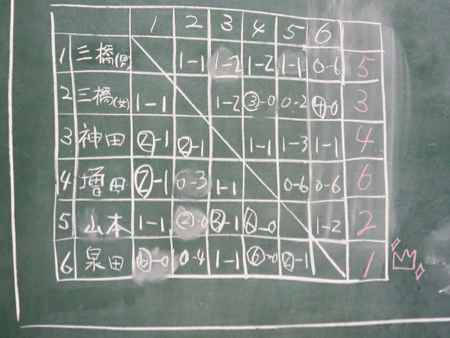 1 2 3 4 5 6
1 三橋(男) 1-1 1-2 1-2 1-1 0-6 5
2 三橋(女) 1-1 1-2 ③-0 0-2 ④-0 3
3 神田 ②-1 ②-1 1-1 1-3 1-1 4
4 増田 ②-1 0-3 1-1 0-6 0-6 6
5 山本 1-1 ②-0 ③-1 ⑥-0 1-2 2
6 泉田 ⑥-0 0-4 1-1 ⑥-0 ②-1 1